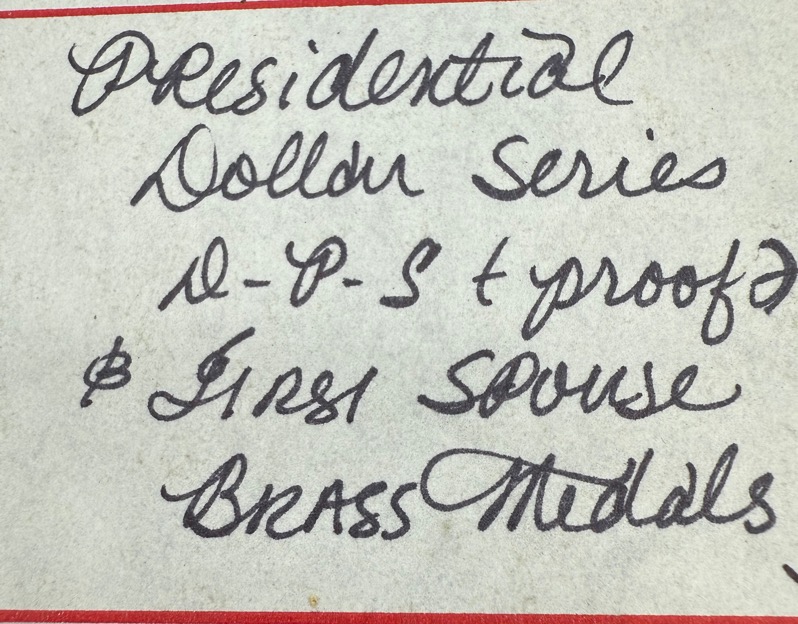 Presidential
Dollar Series
D-P-S + proofs
& First Spouse
Brass Medals